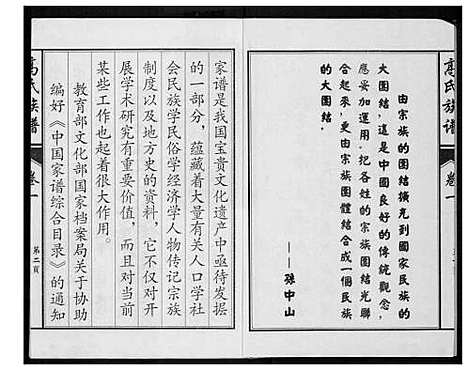 高氏族谱
卷一
由宗族的團結擴充到國家民族的
大團結，這是中國良好的傳統觀念，
應妥加運用。把各姓的宗族團結先聯
合起來，更由宗族團體結合成一個民族
的大團結。
——孫中山
家谱是我国宝贵文化遗产中亟待发掘
的一部分，蕴藏着大量有关人口学社
会民族学民俗学经济学人物传记宗族
制度以及地方史的资料，它不仅对开
展学术研究有重要价值，而且对当前
某些工作也起着很大作用。
教育部文化部国家档案局关于协助
编好《中国家谱综合目录》的通知
高氏族谱
卷一
第二页